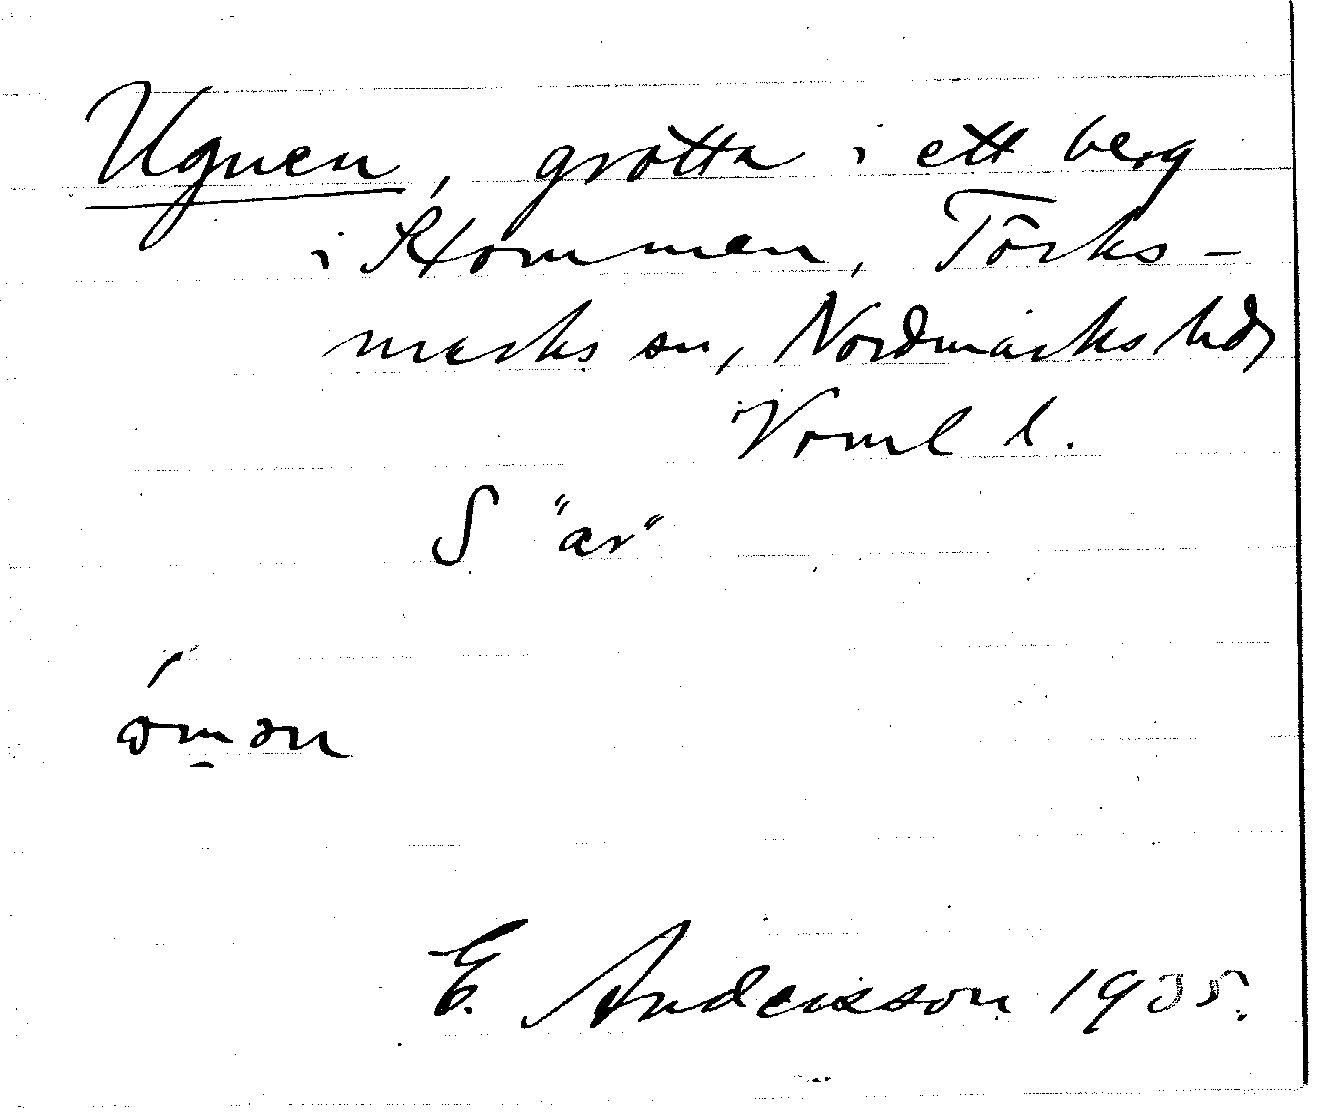 Ugnen, grotta i ett berg
i Klommen, Törks-
marks sn, Nordmarks hd,
Värml l.
S "ar"
E. Andersson 1935.